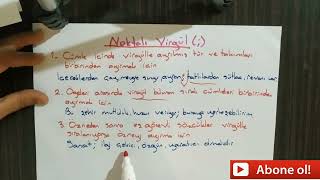 Noktalı Virgül (;)
1. Cümle içinde virgülle ayrılmış tür ve takımları
birbirinden ayırmak için
İçeceklerden çay, meyve suyu, ayran; tatlılardan sütlaç, revani var.
2. Ögeleri arasında virgül bulunan sıralı cümleleri birbirinden
ayırmak için
Bu şehir mutluluk, huzur veriyor; buraya yerleşebilirim.
3. Özneden sonra eş görevli sözcükler virgülle
sıralanıyorsa özneyi ayırma için
Sanat; ilgi çekici, özgün, yaratıcı olmalıdır.
Abone ol!